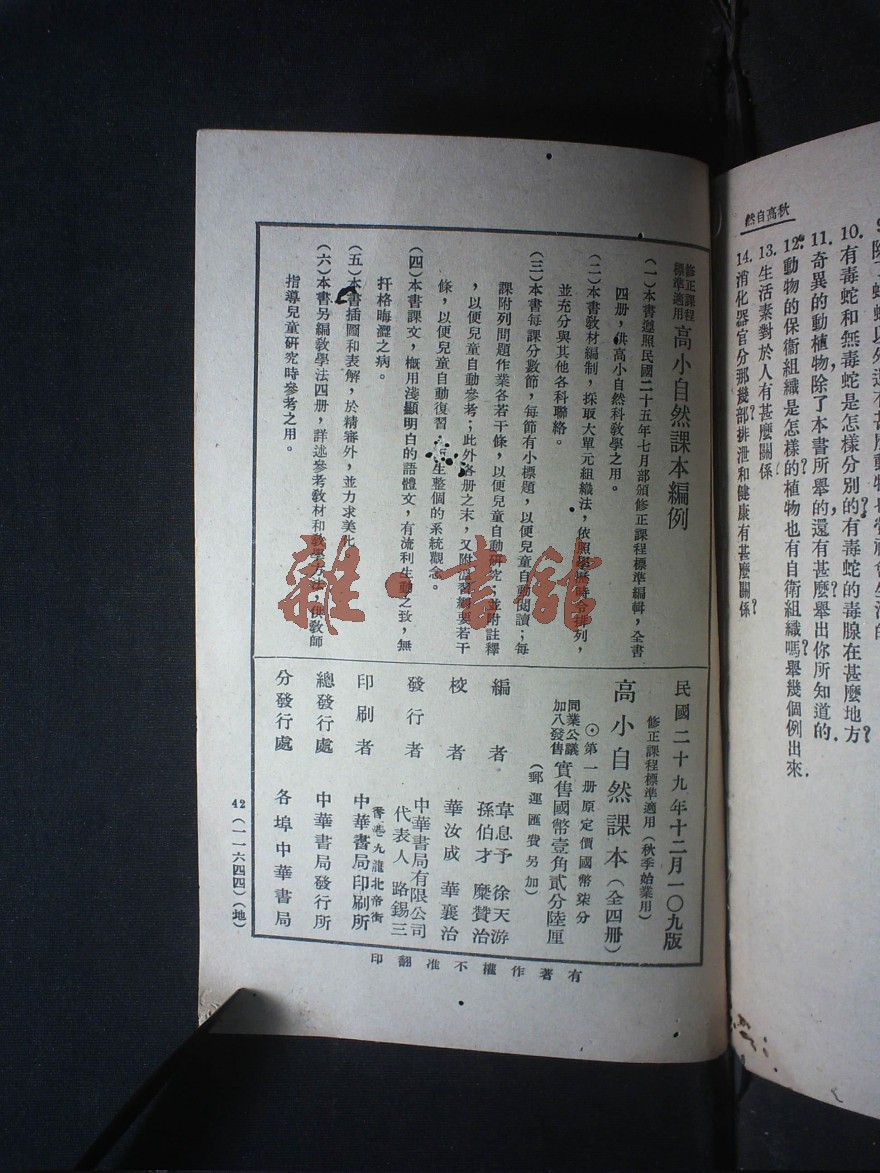 秋高自然
10. 有毒蛇和無毒蛇是怎樣分別的？有毒蛇的毒腺在甚麼地方？
11. 奇異的動植物，除了本書所舉的，還有甚麼？舉出你所知道的.
12. 動物的保衞組織是怎樣的？植物也有自衞組織嗎？舉幾個例出來.
13. 生活素對於人有甚麼關係？
14. 消化器官分那幾部？排泄和健康有甚麼關係？
修正課程標準適用 高小自然課本編例
（一）本書遵照民國二十五年七月部頒修正課程標準編輯，全書
四册，供高小自然科教學之用。
（二）本書教材編制，採取大單元組織法，依照學曆時令排列，
並充分與其他各科聯絡。
（三）本書每課分數節，每節有小標題，以便兒童自動閱讀；每
課附列問題作業各若干條，以便兒童自動研究；並附註釋
，以便兒童自動參考；此外各册之末，又附溫習綱要若干
條，以便兒童自動復習，生整個的系統觀念。
（四）本書課文，概用淺顯明白的語體文，有流利生動之致，無
扞格晦澀之病。
（五）本書插圖和表解，於精審外，並力求美化
（六）本書另編教學法四册，詳述參考教材和教學方法，供教師
指導兒童研究時參考之用。
民國二十九年十二月一〇九版
修正課程標準適用（秋季始業用）
高小自然課本（全四册）
⊙第一册原定價國幣柒分
同業公議加八發售 實售國幣壹角貳分陸厘
（郵運匯費另加）
編者 韋息予 徐天游
孫伯才 糜贊治
校者 華汝成 華襄治
發行者 中華書局有限公司
代表人 路錫三
印刷者 香港九龍北帝街
中華書局印刷所
總發行處 中華書局發行所
分發行處 各埠中華書局
有著作權不准翻印
42（一一六四四）（地）
雜·書館